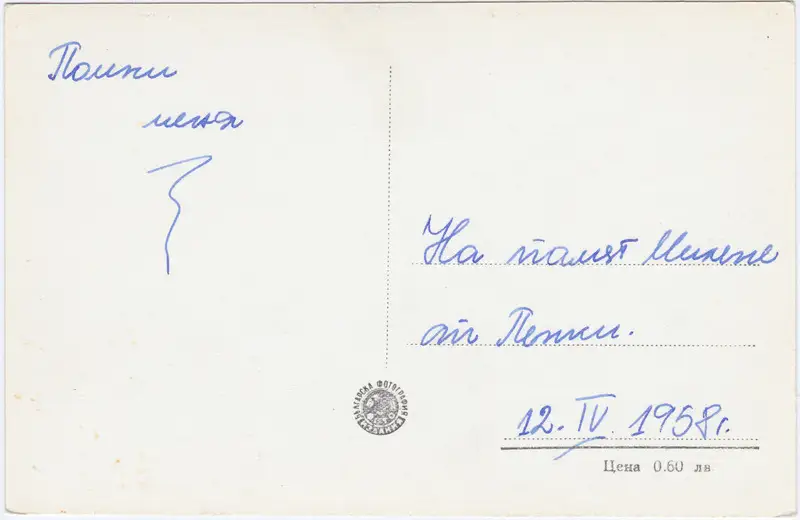 Помни
меня
На памят Милене
от Пенки.
12. IV. 1958г.
БЪЛГАРСКА ФОТОГРАФИЯ
Цена 0.60 лв